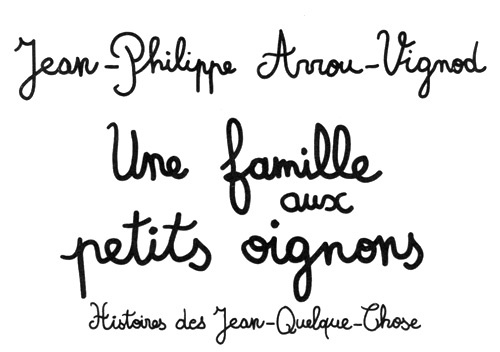 Jean-Philippe Arrou-Vignod
Une famille
aux
petits oignons
Histoires des Jean-Quelque-Chose